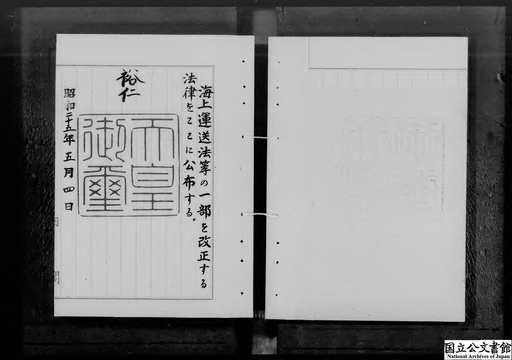 海上運送法等の一部を改正する
法律をここに公布する。
裕仁
天皇
御璽
昭和二十五年五月四日
国立公文書館
National Archives of Japan